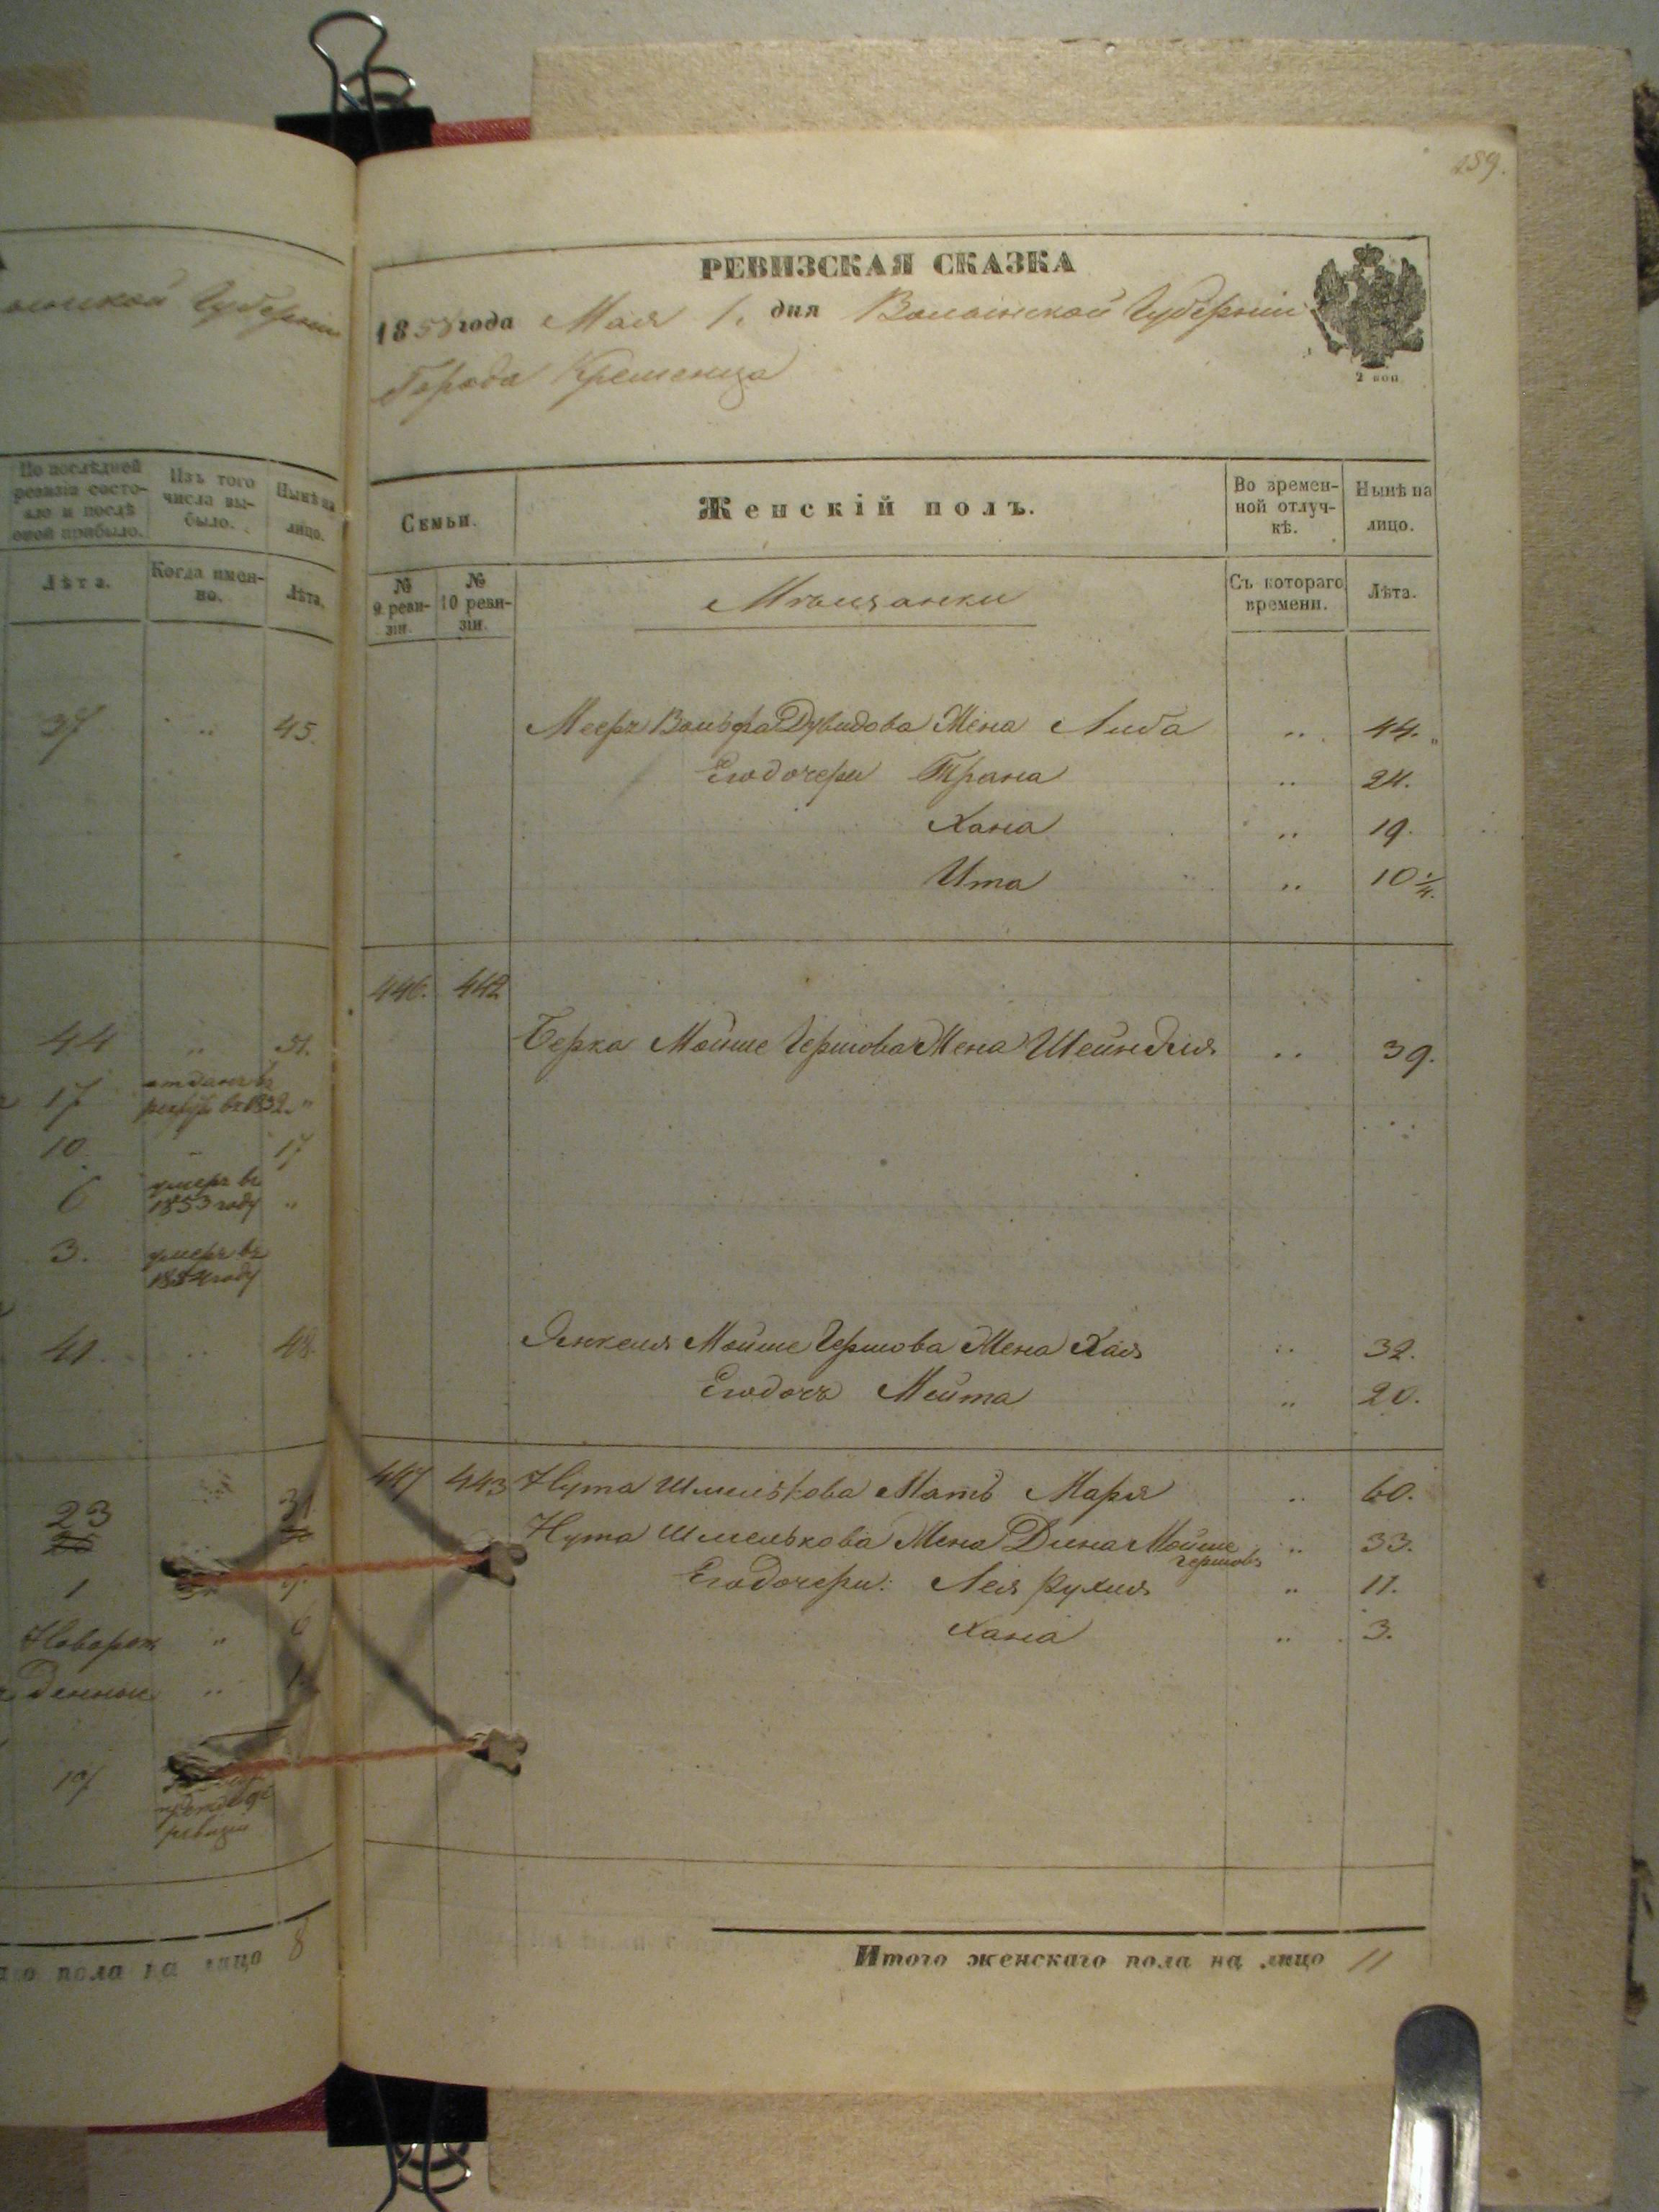 259.
РЕВИЗСКАЯ СКАЗКА
1858 года Мая 1. дня Волынской Губерніи
Города Кременца
2 коп
Семьи.
Женскій полъ.
Во времен-
ной отлуч-
кѣ.
Нынѣ на
лицо.
№
9 реви-
зіи.
№
10 реви-
зіи.
Мѣщанки
Съ котораго
времени.
Лѣта.
Меера Вольфа Дувидова Жена Либа .. 44.
Его дочери Трана .. 24.
Хана .. 19.
Ита .. 10 1/4.
446. 442
Берка Мойше Гершова Жена Шейндля .. 39.
Янкеля Мойше Гершова Жена Хая .. 32.
Его дочь Мейта .. 20.
447 443 Нута Шмелькова Мать Маря .. 60.
Нута Шмелькова Жена Дина Мойше .. 33.
Гершова
Его дочери: Лея Рухля .. 11.
Хана .. 3.
Итого женскаго пола на лицо 11
Губерніи
По послѣдней
ревизіи состо-
яло и послѣ
оной прибыло.
Изъ того
числа вы-
было.
Нынѣ на
лицо.
Лѣта.
Когда имен-
но.
Лѣта.
37 .. 45.
44 .. 51.
отданъ въ
17 рекруты въ 1852. "
10. .. 17
умеръ въ
6 1853 году ..
3. умеръ въ
1854 году
41. .. 48.
23 31
1
Новорож ..
денный ..
ревизіи
пола на лицо 8